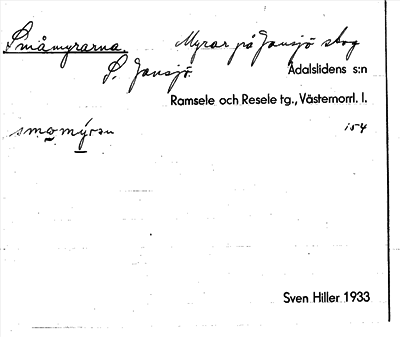 Småmyrarna. Myrar på Jansjö skog
S. Jansjö. Ådalslidens s:n
Ramsele och Resele tg., Västernorrl. l.
smɑmýran 154
Sven Hiller 1933